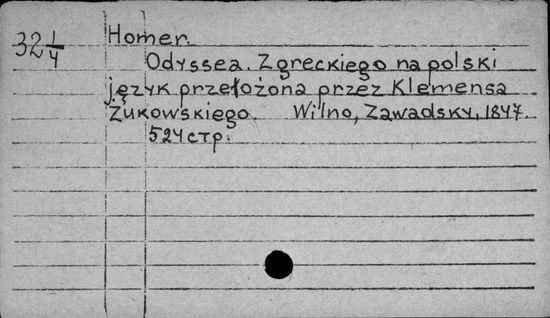 32 1/4
Homer.
Odyssea. Z greckiego na polski
język przełożona przez Klemensa
Żukowskiego. Wilno, Zawadsky, 1847.
524 стр.